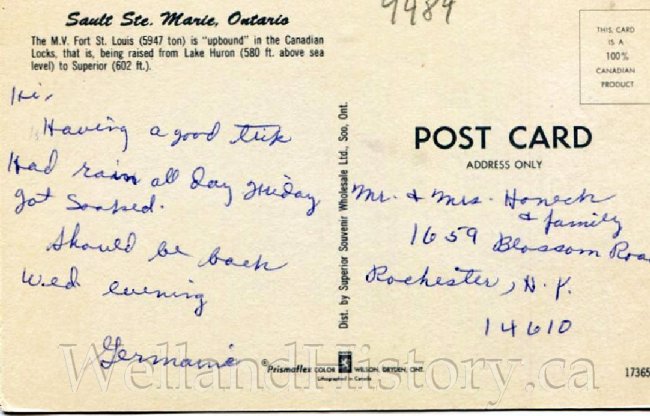 Sault Ste. Marie, Ontario
9489
The M.V. Fort St. Louis (5947 ton) is "upbound" in the Canadian
Locks, that is, being raised from Lake Huron (580 ft. above sea
level) to Superior (602 ft.).
THIS CARD
IS A
100%
CANADIAN
PRODUCT
Hi,
Having a good trip
Had rain all day Friday
got soaked.
Should be back
Wed evening
Germaine
Dist. by Superior Souvenir Wholesale Ltd., Soo, Ont.
POST CARD
ADDRESS ONLY
Mr. & Mrs. Honeck
& family
1659 Blossom Road
Rochester, N.Y.
14610
Prismaflex COLOR WILSON, DRYDEN, ONT.
Lithographed in Canada
17365
WellandHistory.ca